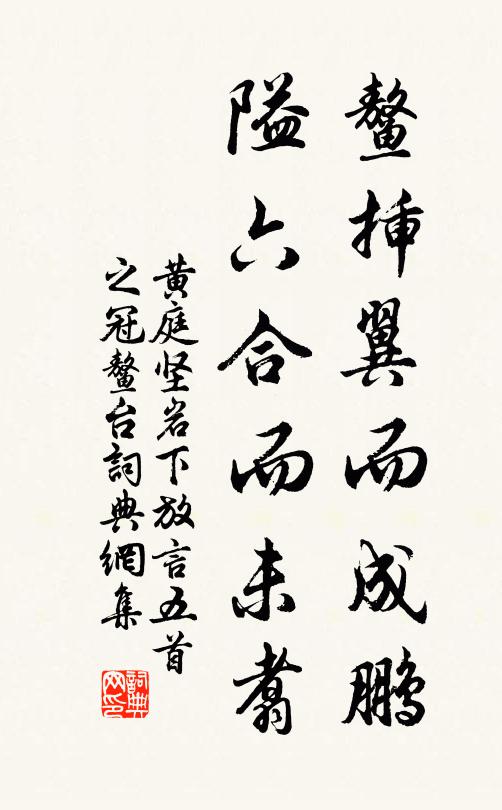 鳌插翼而成鹏
隘六合而未翥
黄庭坚岩下放言五首
之冠鳌台詞典網集
詞典网印